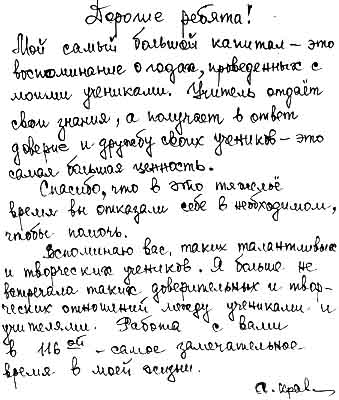 Дорогие ребята!
Мой самый большой капитал – это
воспоминание о годах, проведенных с
моими учениками. Учитель отдаёт
свои знания, а получает в ответ
доверие и дружбу своих учеников – это
самая большая ценность.
Спасибо, что в это тяжелое
время вы отказали себе в необходимом,
чтобы помочь.
Вспоминаю вас, таких талантливых
и творческих учеников. Я больше не
встречала таких доверительных и твор-
ческих отношений между учениками и
учителями. Работа с вами
в 116ой – самое замечательное
время в моей жизни.